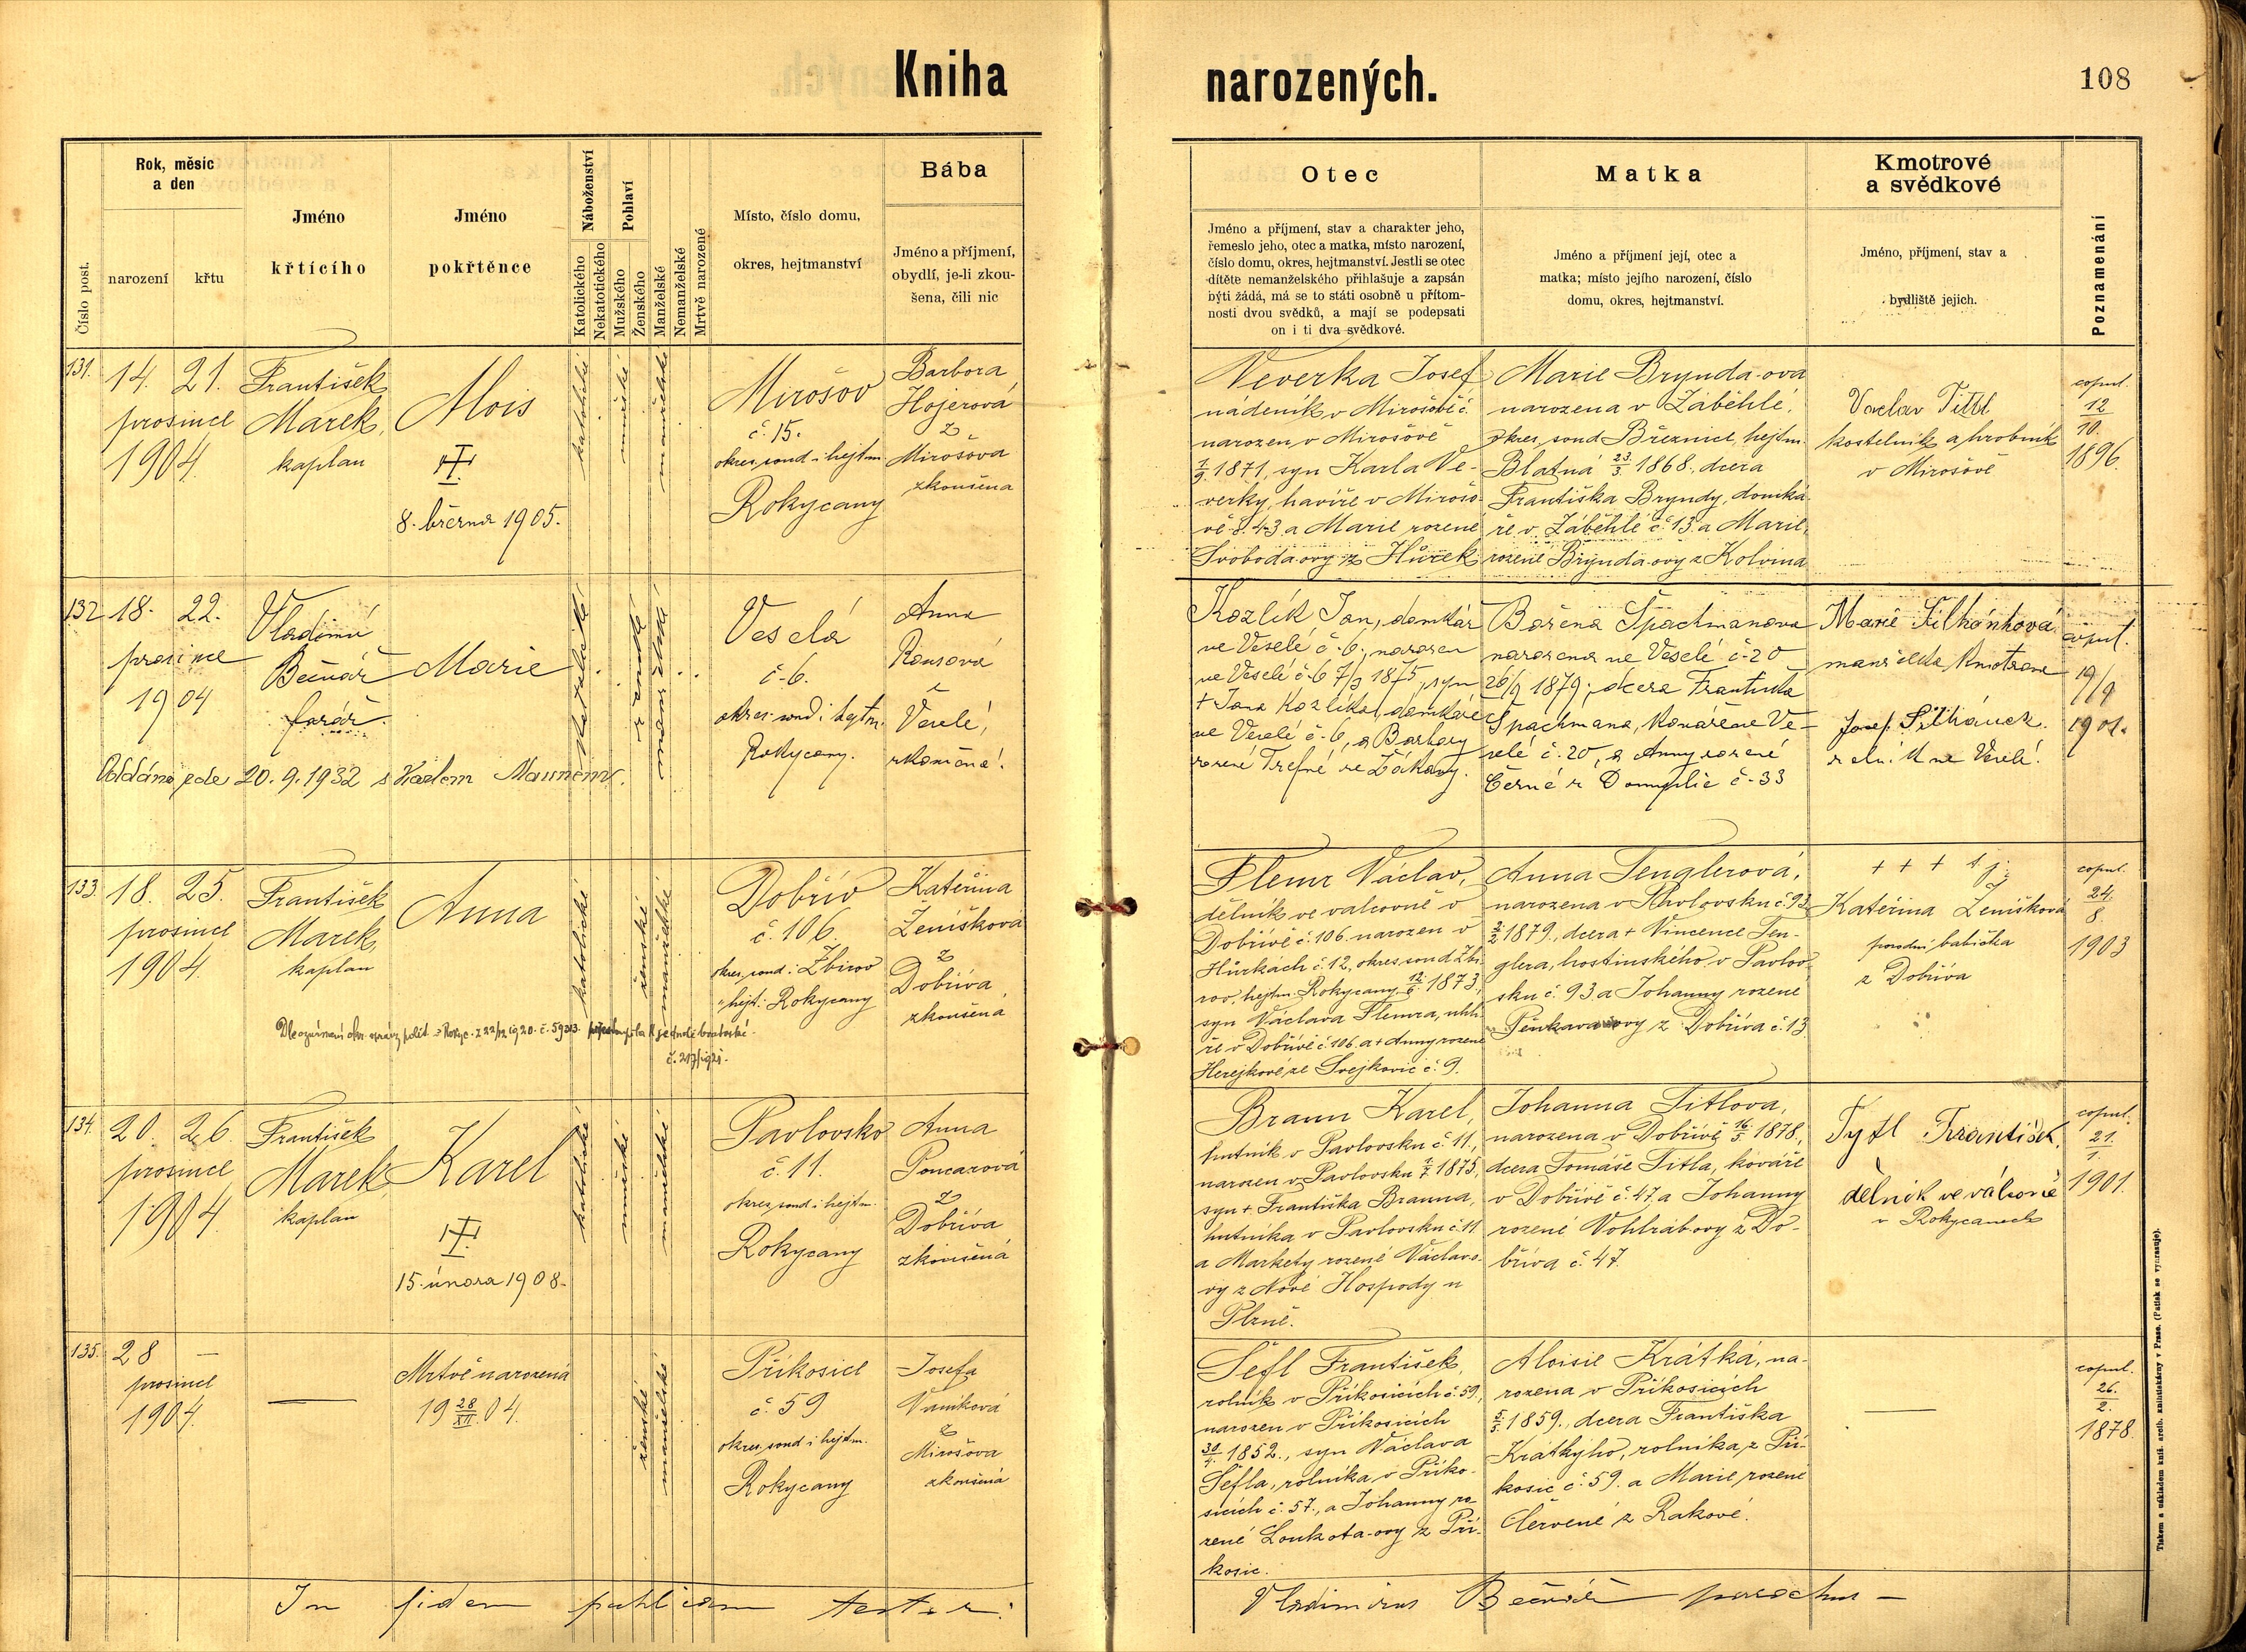 Kniha narozených.
108
Číslo post.
Rok, měsíc
a den
narození
křtu
Jméno
křtícího
Jméno
pokřtěnce
Náboženství
Katolického
Nekatolického
Pohlaví
Mužského
Ženského
Manželské
Nemanželské
Mrtvě narozené
Místo, číslo domu,
okres, hejtmanství
Bába
Jméno a příjmení,
obydlí, je-li zkou-
šena, čili nic
Otec
Jméno a příjmení, stav a charakter jeho,
řemeslo jeho, otec a matka, místo narození,
číslo domu, okres, hejtmanství. Jestli se otec
dítěte nemanželského přihlašuje a zapsán
býti žádá, má se to státi osobně u přítom-
nosti dvou svědků, a mají se podepsati
on i ti dva svědkové.
Matka
Jméno a příjmení její, otec a
matka; místo jejího narození, číslo
domu, okres, hejtmanství.
Kmotrové
a svědkové
Jméno, příjmení, stav a
bydliště jejich.
Poznamenání
131.
14. 21.
prosince
1904.
František
Marek,
kaplan
Alois
8. března 1905.
katolické
mužské
manželské
Mirošov
č. 15.
okres, soud i hejtm.
Rokycany
Barbora
Hojerová
z
Mirošova
zkoušena
Veverka Josef
nádeník v Mirošově č.
narozen v Mirošově
1/9 1871, syn Karla Ve-
verky, havíře v Mirošo-
vě č. 43 a Marie rozené
Svoboda-ovy z Hůrek
Marie Brynda-ova
narozena v Záběhlé,
okres, soud Březnice, hejtm.
Blatná 23/3. 1868., dcera
Františka Bryndy, domká-
ře v Záběhlé č. 13. a Marie,
rozené Brynda-ovy z Kolvína
Václav Titl
kostelník a hrobník
v Mirošově
copul.
12
10.
1896.
132
18. 22.
prosince
1904
Vladimír
Bečvář
farář.
Marie
katolické
ženské
manželské
Veselá
č. 6.
okres soud i hejtm.
Rokycany.
Anna
Rousová
z
Veselé,
zkoušená.
Oddána zde 20. 9. 1932 s Karlem
Kozlík Jan, domkář
ve Veselé č. 6., narozen
ve Veselé č. 6 7/9 1875, syn
+ Jana Kozlíka, domkáře
ve Veselé č. 6, a Barbory
rozené Trefné ze Žákavy.
Božena Špachmanova
narozena ve Veselé č. 20
26/9 1879, dcera Františka
Špachmana, kováře ve Ve-
selé č. 20, a Anny rozené
Černé z Domyslic č. 33
Marie Silhánková
manželka kmotrova
Josef Silhánek.
rolník ve Veselé.
copul.
19/9
1901.
133
18. 25.
prosince
1904.
František
Marek,
kaplan
Anna
katolické
ženské
manželské
Dobřív
č. 106.
okres, soud: Zbirov
hejt: Rokycany
Kateřina
Ženíšková
z
Dobříva
zkoušena
č. 217/1921.
Flemr Václav,
dělník ve valcovně v
Dobřívě č. 106. narozen v
Hůrkách č. 12, okres, soud Zbi-
rov, hejtm. Rokycany 12/6. 1873,
syn Václava Flemra, uhlí-
ře v Dobřívě č. 106. a + Anny rozené
Herejkové ze Svejkovic č. 9.
Anna Tenglerová,
narozena v Pavlovsku č. 93.
2/2 1879., dcera + Vincence Ten-
glera, hostinského v Pavlov-
sku č. 93. a Johanny rozené
z Dobříva č. 13.
+ + +
Kateřina Ženíšková
porodní babička
z Dobříva
copul.
24
8.
1903
134.
20. 26.
prosince
1904.
František
Marek
kaplan
Karel
15. února 1908.
katolické
mužské
manželské
Pavlovsko
č. 11.
okres, soud i hejtm.
Rokycany
Anna
Poncarová
z
Dobříva
zkoušená
Braun Karel,
hutník v Pavlovsku č. 11,
narozen v Pavlovsku 1/7 1875,
syn + Františka Brauna,
hutníka v Pavlovsku č. 11
a Markety rozené Václavo-
vy z Nové Hospody u
Plzně.
Johanna Titlova,
narozena v Dobřívě 16/5. 1878.,
dcera Tomáše Titla, kováře
v Dobřívě č. 47, a Johanny
rozené Vohlrábovy z Do-
bříva č. 47.
Tytl František,
dělník ve válcovně
v Rokycanech
copul.
21
1.
1901.
135.
28 —
prosince
1904.
Mrtvě narozená
19 28/XII. 04.
ženské
manželské
Příkosice
č. 59
okres, soud i hejtm.
Rokycany
Josefa
Vaníková
z
Mirošova
zkoušená
Šefl František,
rolník v Příkosicích č. 59,
narozen v Příkosicích
30/4. 1852., syn Václava
Šefla, rolníka v Příko-
sicích č. 57., a Johanny ro-
zené Loukota-ovy z Pří-
kosic.
Aloisie Krátká, na-
rozena v Příkosicích
5/5. 1859., dcera Františka
Krátkýho, rolníka, z Pří-
kosic č. 59. a Marie rozené
Červené z Rakové.
copul.
26.
2.
1878.
In fidem publicam testor:
Vladimirus Bečvář parochus —
Tiskem a nákladem kníž. arcib. knihtiskárny v Praze. (Patisk se vyhrazuje).